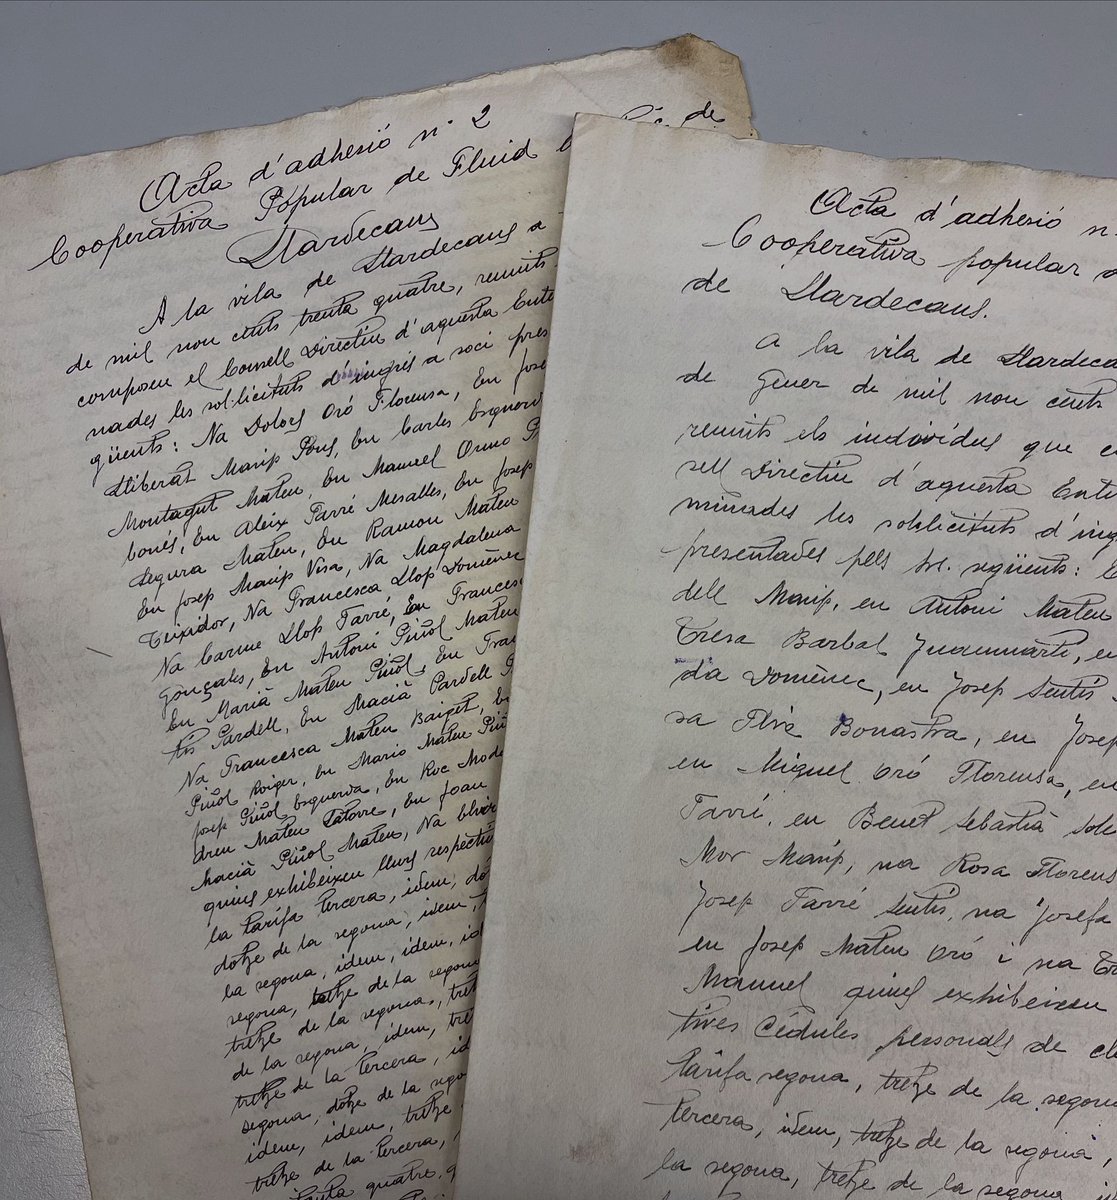 Acta d'adhesió nº 2
Cooperativa Popular de Fluid de
Llardecans
A la vila de Llardecans a
de mil nou cents trenta quatre, reunits
composen el Consell Directiu d'aquesta Enti
nades les sol·licituts d'ingrés a soci pres
güents: Na Dolors Oró Florensa, En Jose
Lliberat Marip Pons, En Carles Esquerd
Montagut Mateu, En Manuel Orno
bonés, En Aleix Farré Mesalles, En Josep
Segura Mateu, En Ramon Mateu
En Josep Marip Visa, Na Magdalena
Teixidor, Na Francesca Llop Domènec
Na Carme Llop Farré, En Francesc
Gonçales, En Antoni Piñol Mateu
En Marià Mateu Piñol, En Fran
tís Pardell, En Macià Pardell
Na Francesca Mateu Baiget, E
Piñol Roiger, En Mario Mateu Piñ
Josep Piñol Esquerda, En Roc Mode
dreu Mateu Latorre, En Joan
Macià Piñol Mateu, Na
quins exhibeixen llurs respectiv
la tarifa tercera, idem, dot
dotze de la segona, idem,
la segona, idem, idem, id
segona, tretze de la segona
tretze de la segona, tret
de la segona, idem, tre
tretze de la tercera, id
segona, dotze de la sego
idem, idem, tretze
tretze de la tercera,
tanta quatre, q
Acta d'adhesió n.
Cooperativa popular d
de Llardecans.
A la vila de Llardeca
de Gener de mil nou cents
reunits els individus que c
sell Directiu d'aquesta Enti
minades les sol·licituts d'ing
presentades pels sr. següents: E
dell Marip, en Antoni Mateu
Tresa Barbal Juanmartí, en
da Domènec, en Josep Sentís
sa Flix Bonastra, en Josep
en Miquel Oró Florensa, en
Farré, en Benet Sebastià Sol
Mor Marip, na Rosa Florens
Josep Farré Sentís, na Josefa
en Josep Mateu Oró i na Tr
Manuel quins exhibeixen
tives Cédules personals de cl
tarifa segona, tretze de la segon
tercera, idem, tretze de la segona,
la segona, tretze de la segona i